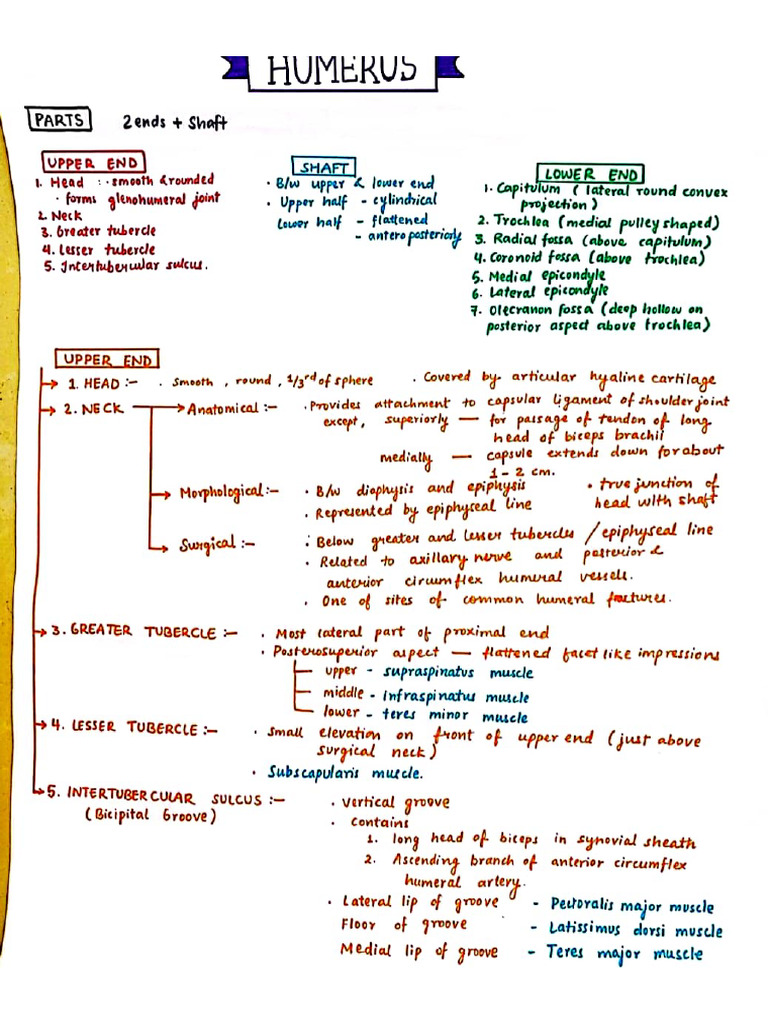 HUMERUS
PARTS 2 ends + Shaft
UPPER END
1. Head :- smooth & rounded
· forms glenohumeral joint
2. Neck
3. Greater tubercle
4. Lesser tubercle
5. Intertubercular sulcus.
SHAFT
· B/w upper & lower end
· Upper half - cylindrical
Lower half - flattened
- anteroposteriorly
LOWER END
1. Capitulum ( lateral round convex
projection )
2. Trochlea (medial pulley shaped)
3. Radial fossa (above capitulum)
4. Coronoid fossa (above trochlea)
5. Medial epicondyle
6. Lateral epicondyle
7. Olecranon fossa (deep hollow on
posterior aspect above trochlea)
UPPER END
1. HEAD :- · smooth , round , 1/3rd of sphere · Covered by articular hyaline cartilage
2. NECK Anatomical :- · Provides attachment to capsular ligament of shoulder joint
except, superiorly — for passage of tendon of long
head of biceps brachii
medially — capsule extends down for about
1 - 2 cm.
Morphological :- · B/w diaphysis and epiphysis · true junction of
head with shaft
· Represented by epiphyseal line
Surgical :- · Below greater and lesser tubercles / epiphyseal line
· Related to axillary nerve and posterior &
anterior circumflex humeral vessels.
· One of sites of common humeral fractures.
3. GREATER TUBERCLE :- · Most lateral part of proximal end
· Posterosuperior aspect — flattened facet like impressions
upper - supraspinatus muscle
middle - infraspinatus muscle
lower - teres minor muscle
4. LESSER TUBERCLE :- · Small elevation on front of upper end ( just above
surgical neck )
· Subscapularis muscle.
5. INTERTUBERCULAR SULCUS :- · vertical groove
( Bicipital Groove ) · contains
1. long head of biceps in synovial sheath
2. Ascending branch of anterior circumflex
humeral artery.
· Lateral lip of groove - Pectoralis major muscle
Floor of groove - Latissimus dorsi muscle
Medial lip of groove - Teres major muscle